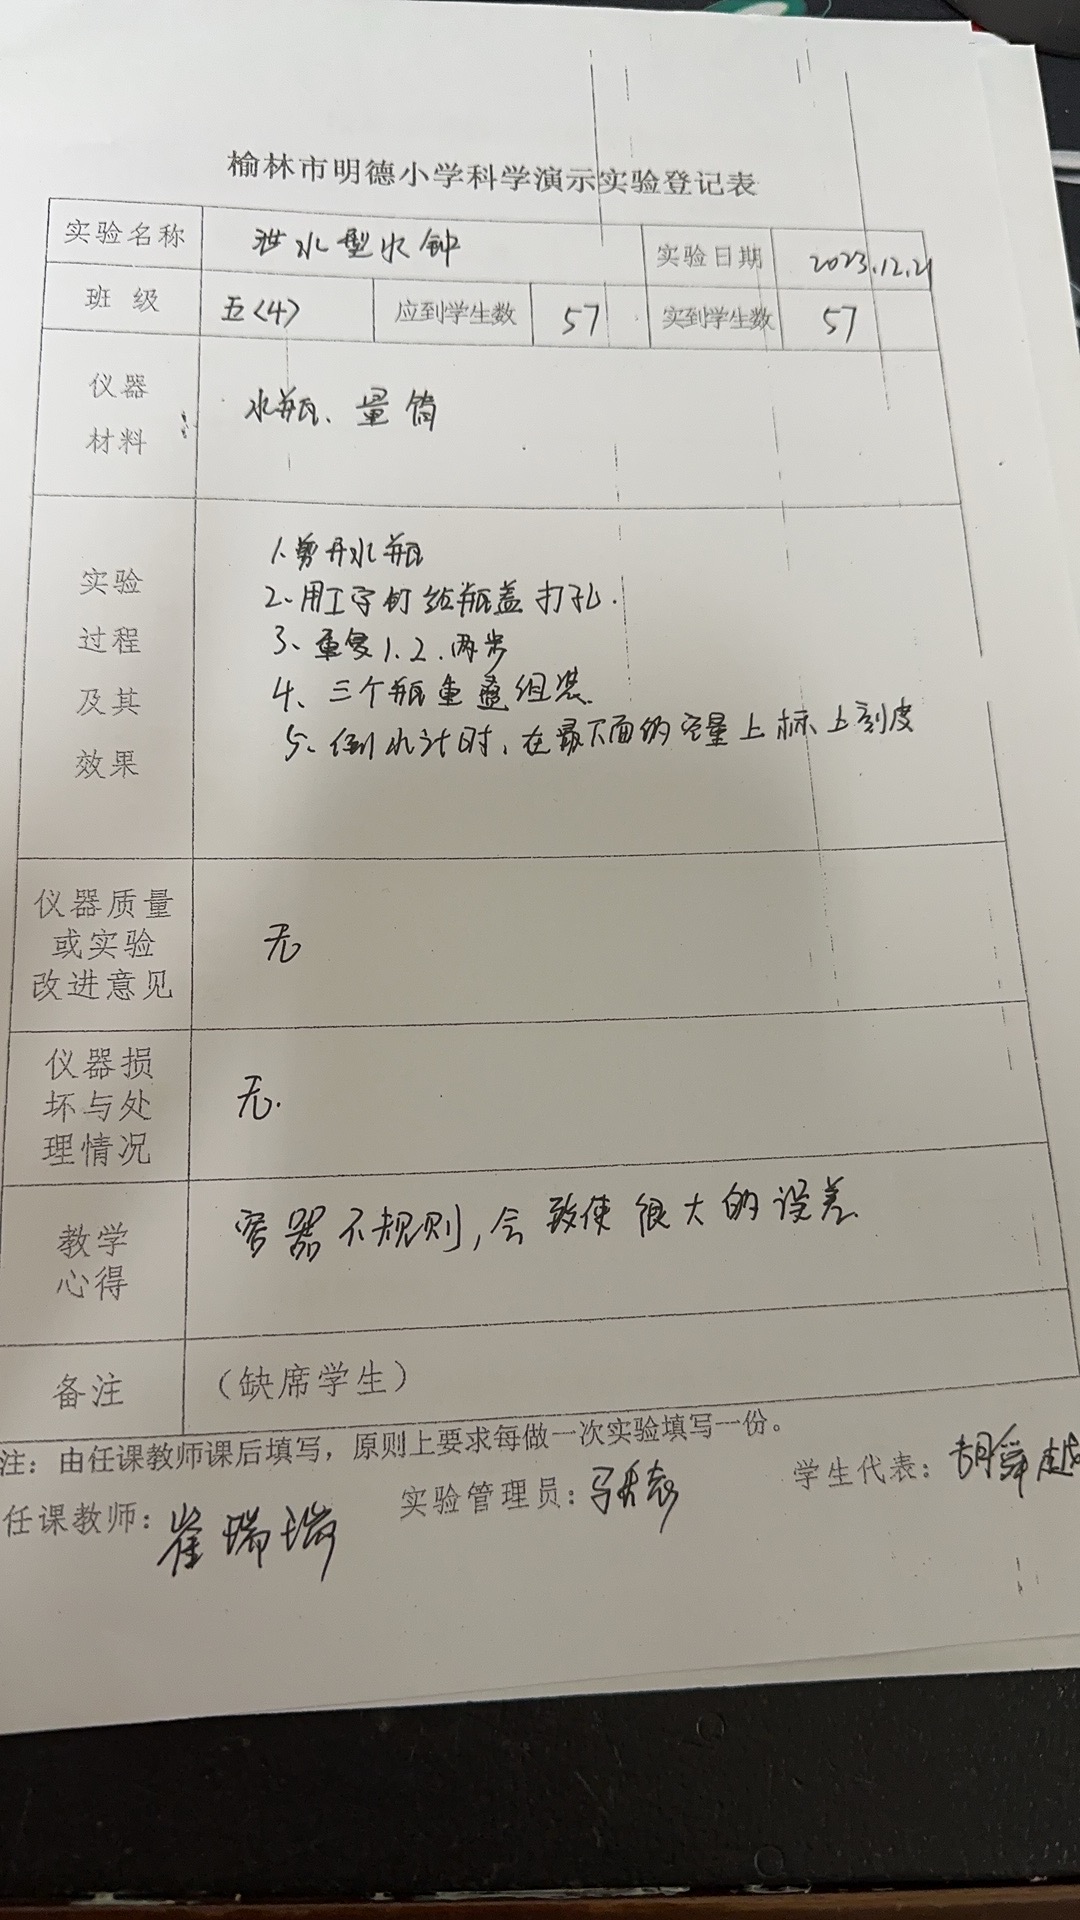 榆林市明德小学科学演示实验登记表
实验名称 泄水型水钟 实验日期 2023.12.21
班 级 五〈4〉 应到学生数 57 实到学生数 57
仪器
材料
水瓶、量筒
实验
过程
及其
效果
1、剪开水瓶
2、用工字钉给瓶盖打孔.
3、重复1.2.两步
4、三个瓶重叠组装.
5、倒水计时、在最下面的容量上标上刻度
仪器质量
或实验
改进意见
无
仪器损
坏与处
理情况
无.
教学
心得
容器不规则,会致使很大的误差.
备注 (缺席学生)
注：由任课教师课后填写，原则上要求每做一次实验填写一份。
任课教师：崔瑞瑞 实验管理员： 学生代表：胡舜越